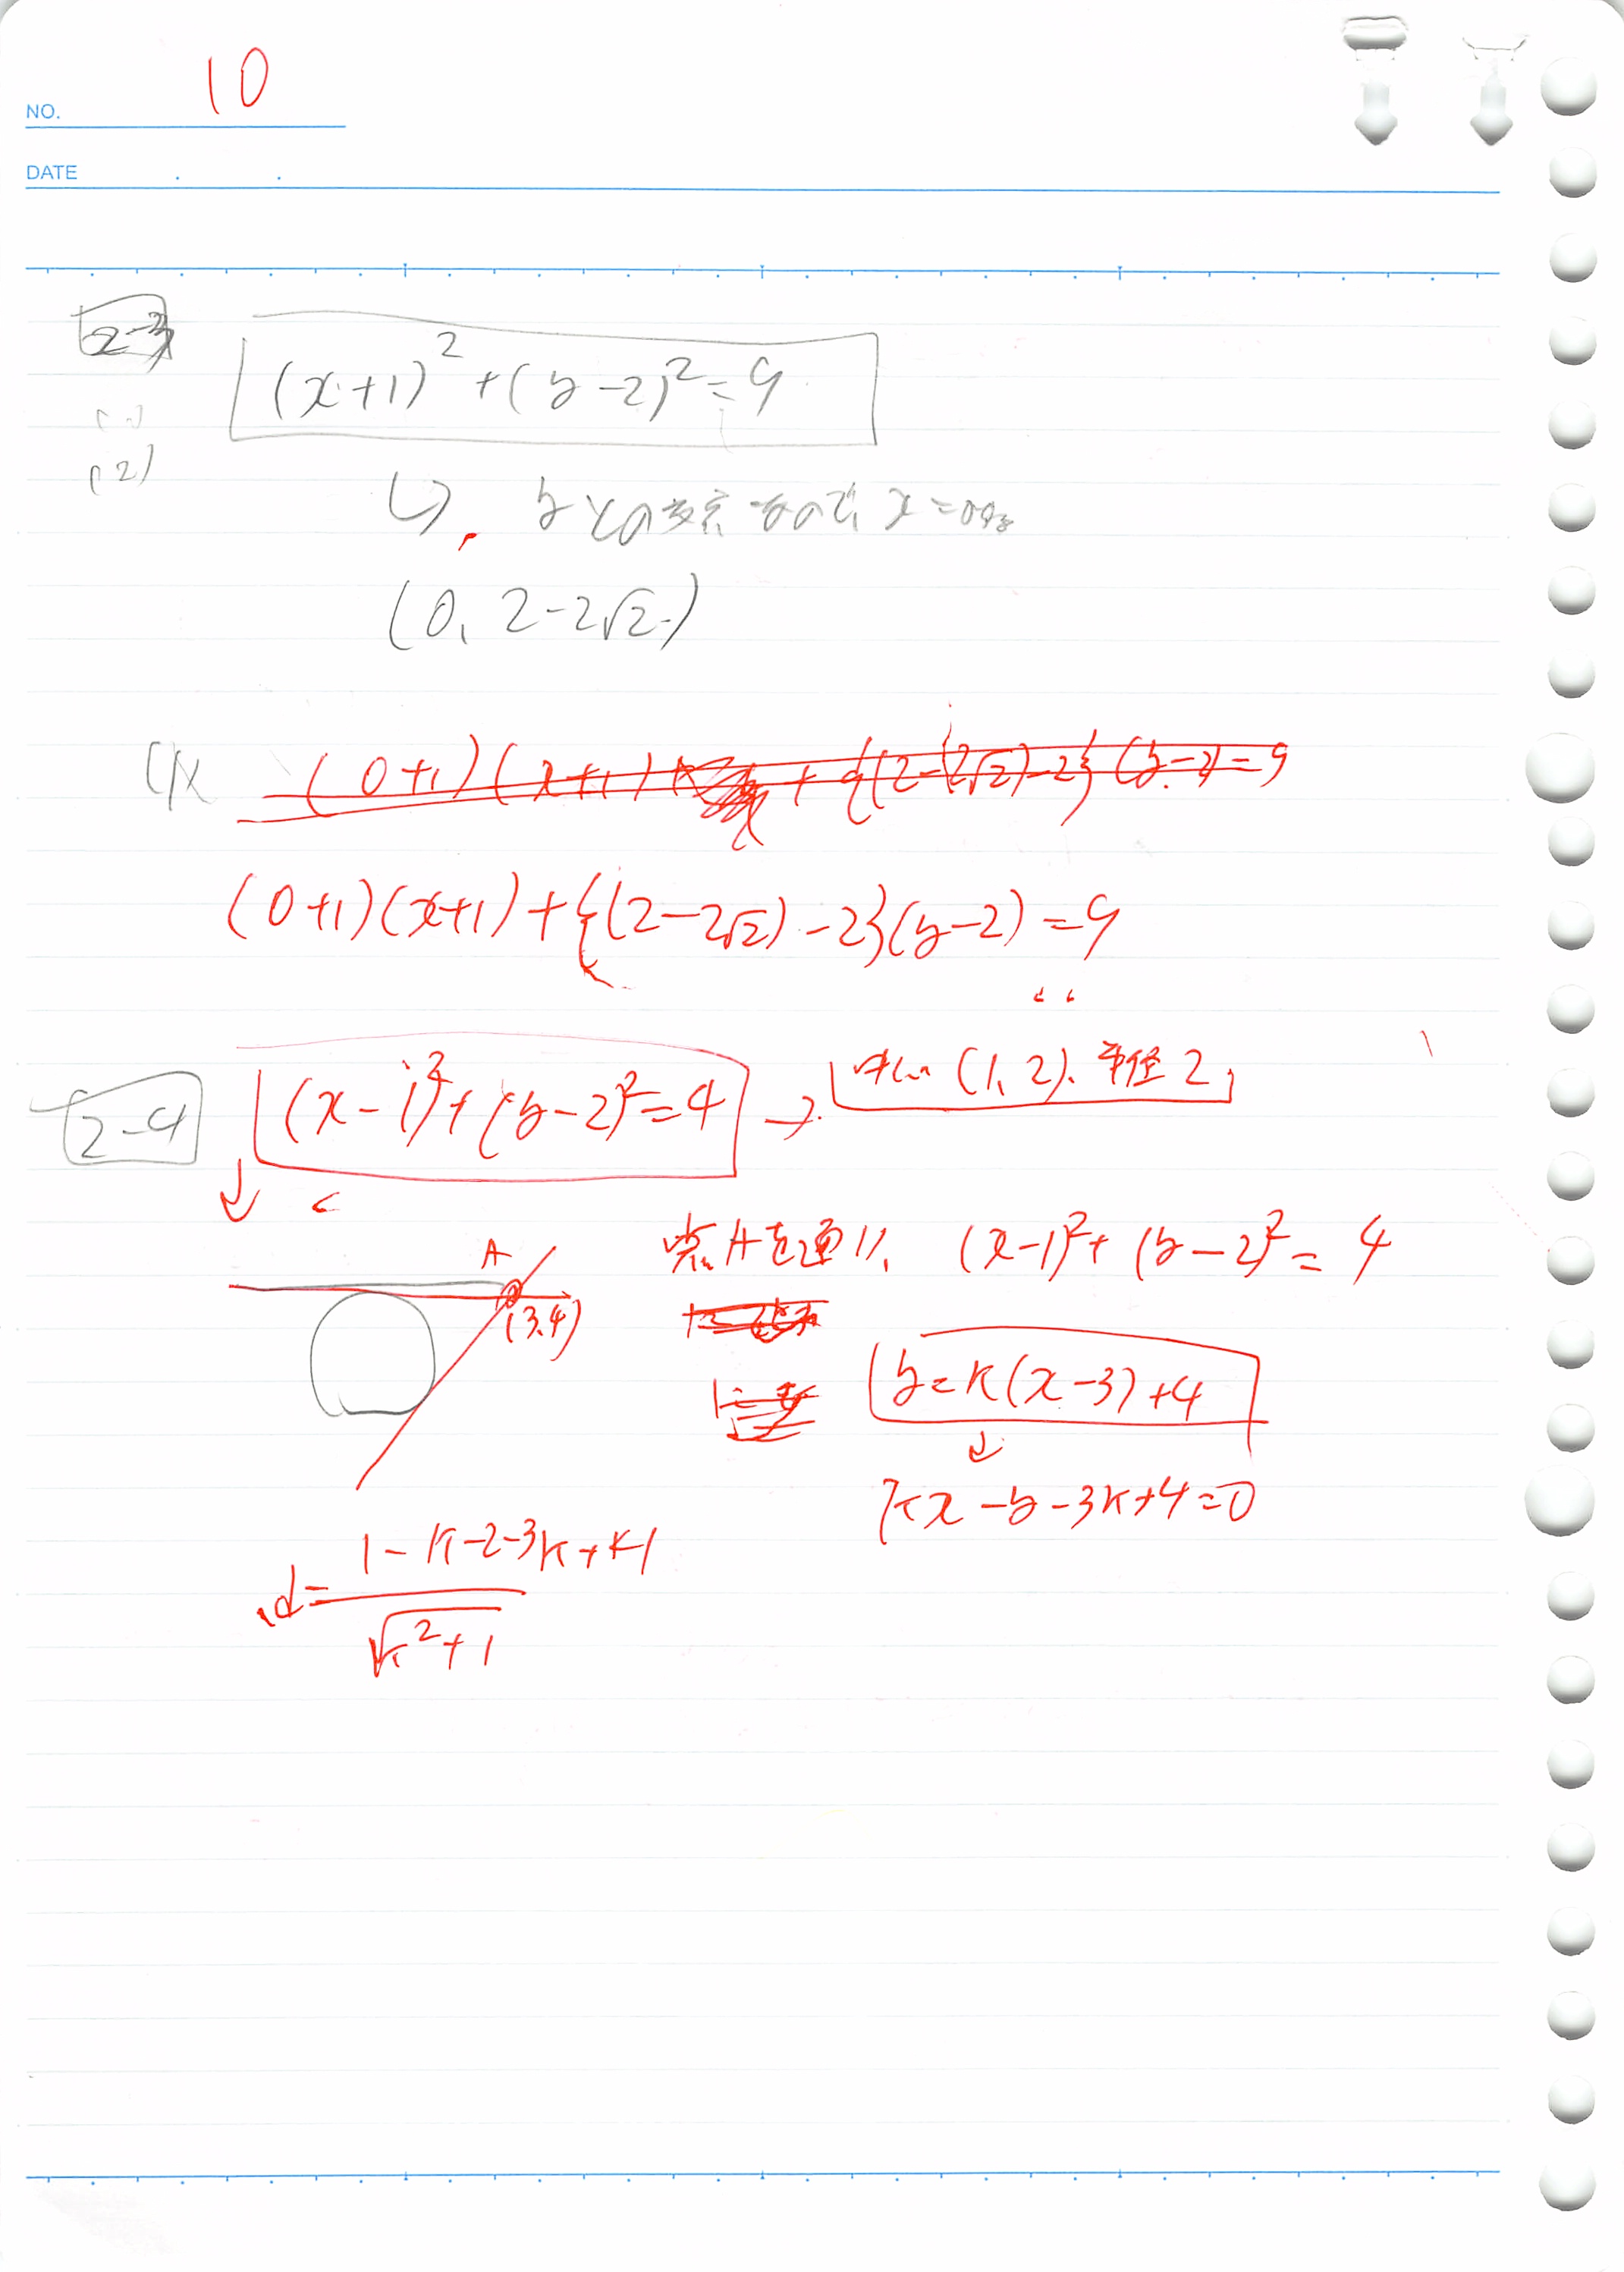 10
NO.
DATE
2-3
(x+1)² + (y-2)² = 9
(2)
yとの交点なので、x=0
(0, 2-2√2)
(0+1)(x+1) + {(2-2√2)-2}(y-2) = 9
(0+1)(x+1) + {(2-2√2)-2}(y-2) = 9
2-4
(x-1)² + (y-2)² = 4 → 中心 (1, 2)、半径 2
点Aを通り、 (x-1)² + (y-2)² = 4
A
(3,4)
y=k(x-3)+4
↓
kx-y-3k+4=0
d= |-k-2-3k+k| / √k²+1